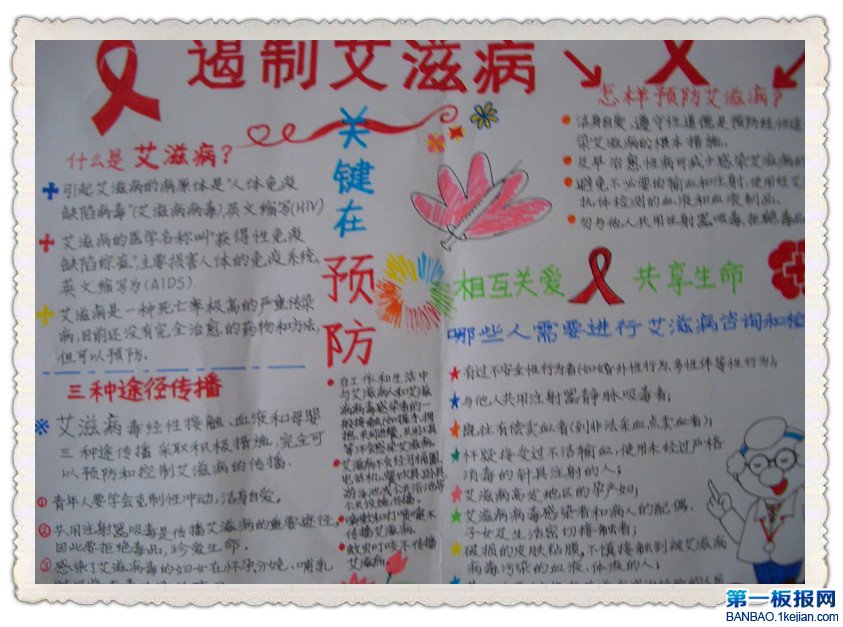 遏制艾滋病
什么是艾滋病？
引起艾滋病的病原体是"人体免疫
缺陷病毒"(艾滋病病毒),英文缩写(HIV)
艾滋病的医学名称叫"获得性免疫
缺陷综症",主要损害人体的免疫系统,
英文缩写为(AIDS).
艾滋病是一种死亡率极高的严重传染
病,目前还没有完全治愈的药物和方法,
但可以预防.
三种途径传播
艾滋病毒经性接触、血液和母婴
三种途传播 采取积极措施,完全可
以预防和控制艾滋病的传播.
①青年人要学会克制性冲动,洁身自爱.
②共用注射器吸毒是传播艾滋病的重要途径,
因此要拒绝毒品,珍爱生命.
③感染了艾滋病毒的妇女在怀孕分娩、哺乳
关键在
预防
在工作和生活中
与艾滋病人和艾滋
病病毒感染者的一
艾滋病不会经马桶圈,
电话机、餐饮具卧具
咳嗽和打喷嚏不
传播艾滋病.
蚊虫叮咬不传播
艾滋病.
怎样预防艾滋病?
洁身自爱,遵守性道德是预防经性途
染艾滋病的根本措施.
及早治愈性病可减少感染艾滋病的
避免不必要的输血和注射,使用经艾
抗体检测的血液和血液制品.
勿与他人共用注射器吸毒,拒绝毒品
相互关爱 共享生命
哪些人需要进行艾滋病咨询和检
有过不安全性行为者(如婚外性行为、多性伴等性行为);
与他人共用注射器静脉吸毒者;
既往有偿卖血者(到非法采血点卖血者);
怀疑接受过不洁输血,使用未经过严格
消毒的针具注射的人;
艾滋病高发地区的孕产妇;
艾滋病病毒感染者和病人的配偶、
子女及生活密切接触者;
破损的皮肤粘膜,不慎接触到被艾滋病
病毒污染的血液、体液的人;
第一板报网
BANBAO.1kejian.com